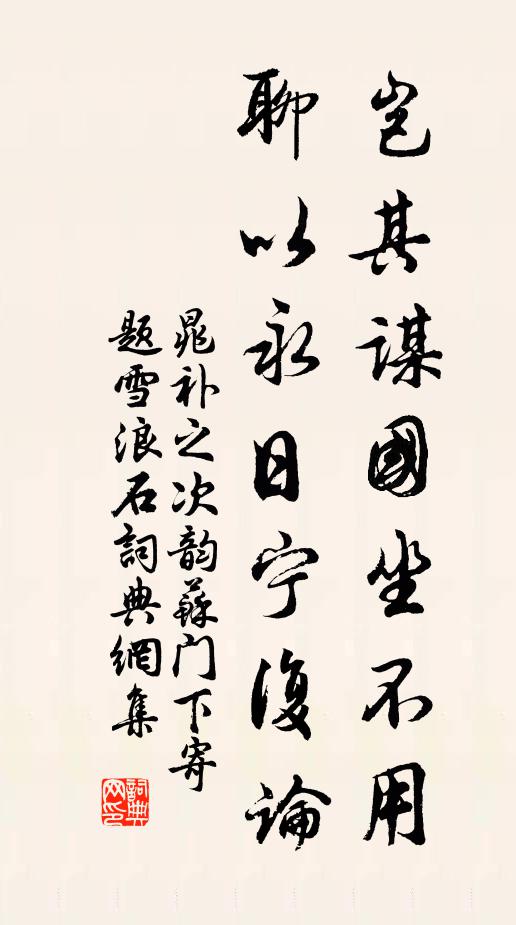 岂其谋國坐不用
聊以永日宁復論
晁补之次韵蘇门下寄
题雪浪石詞典網集
詞典网印